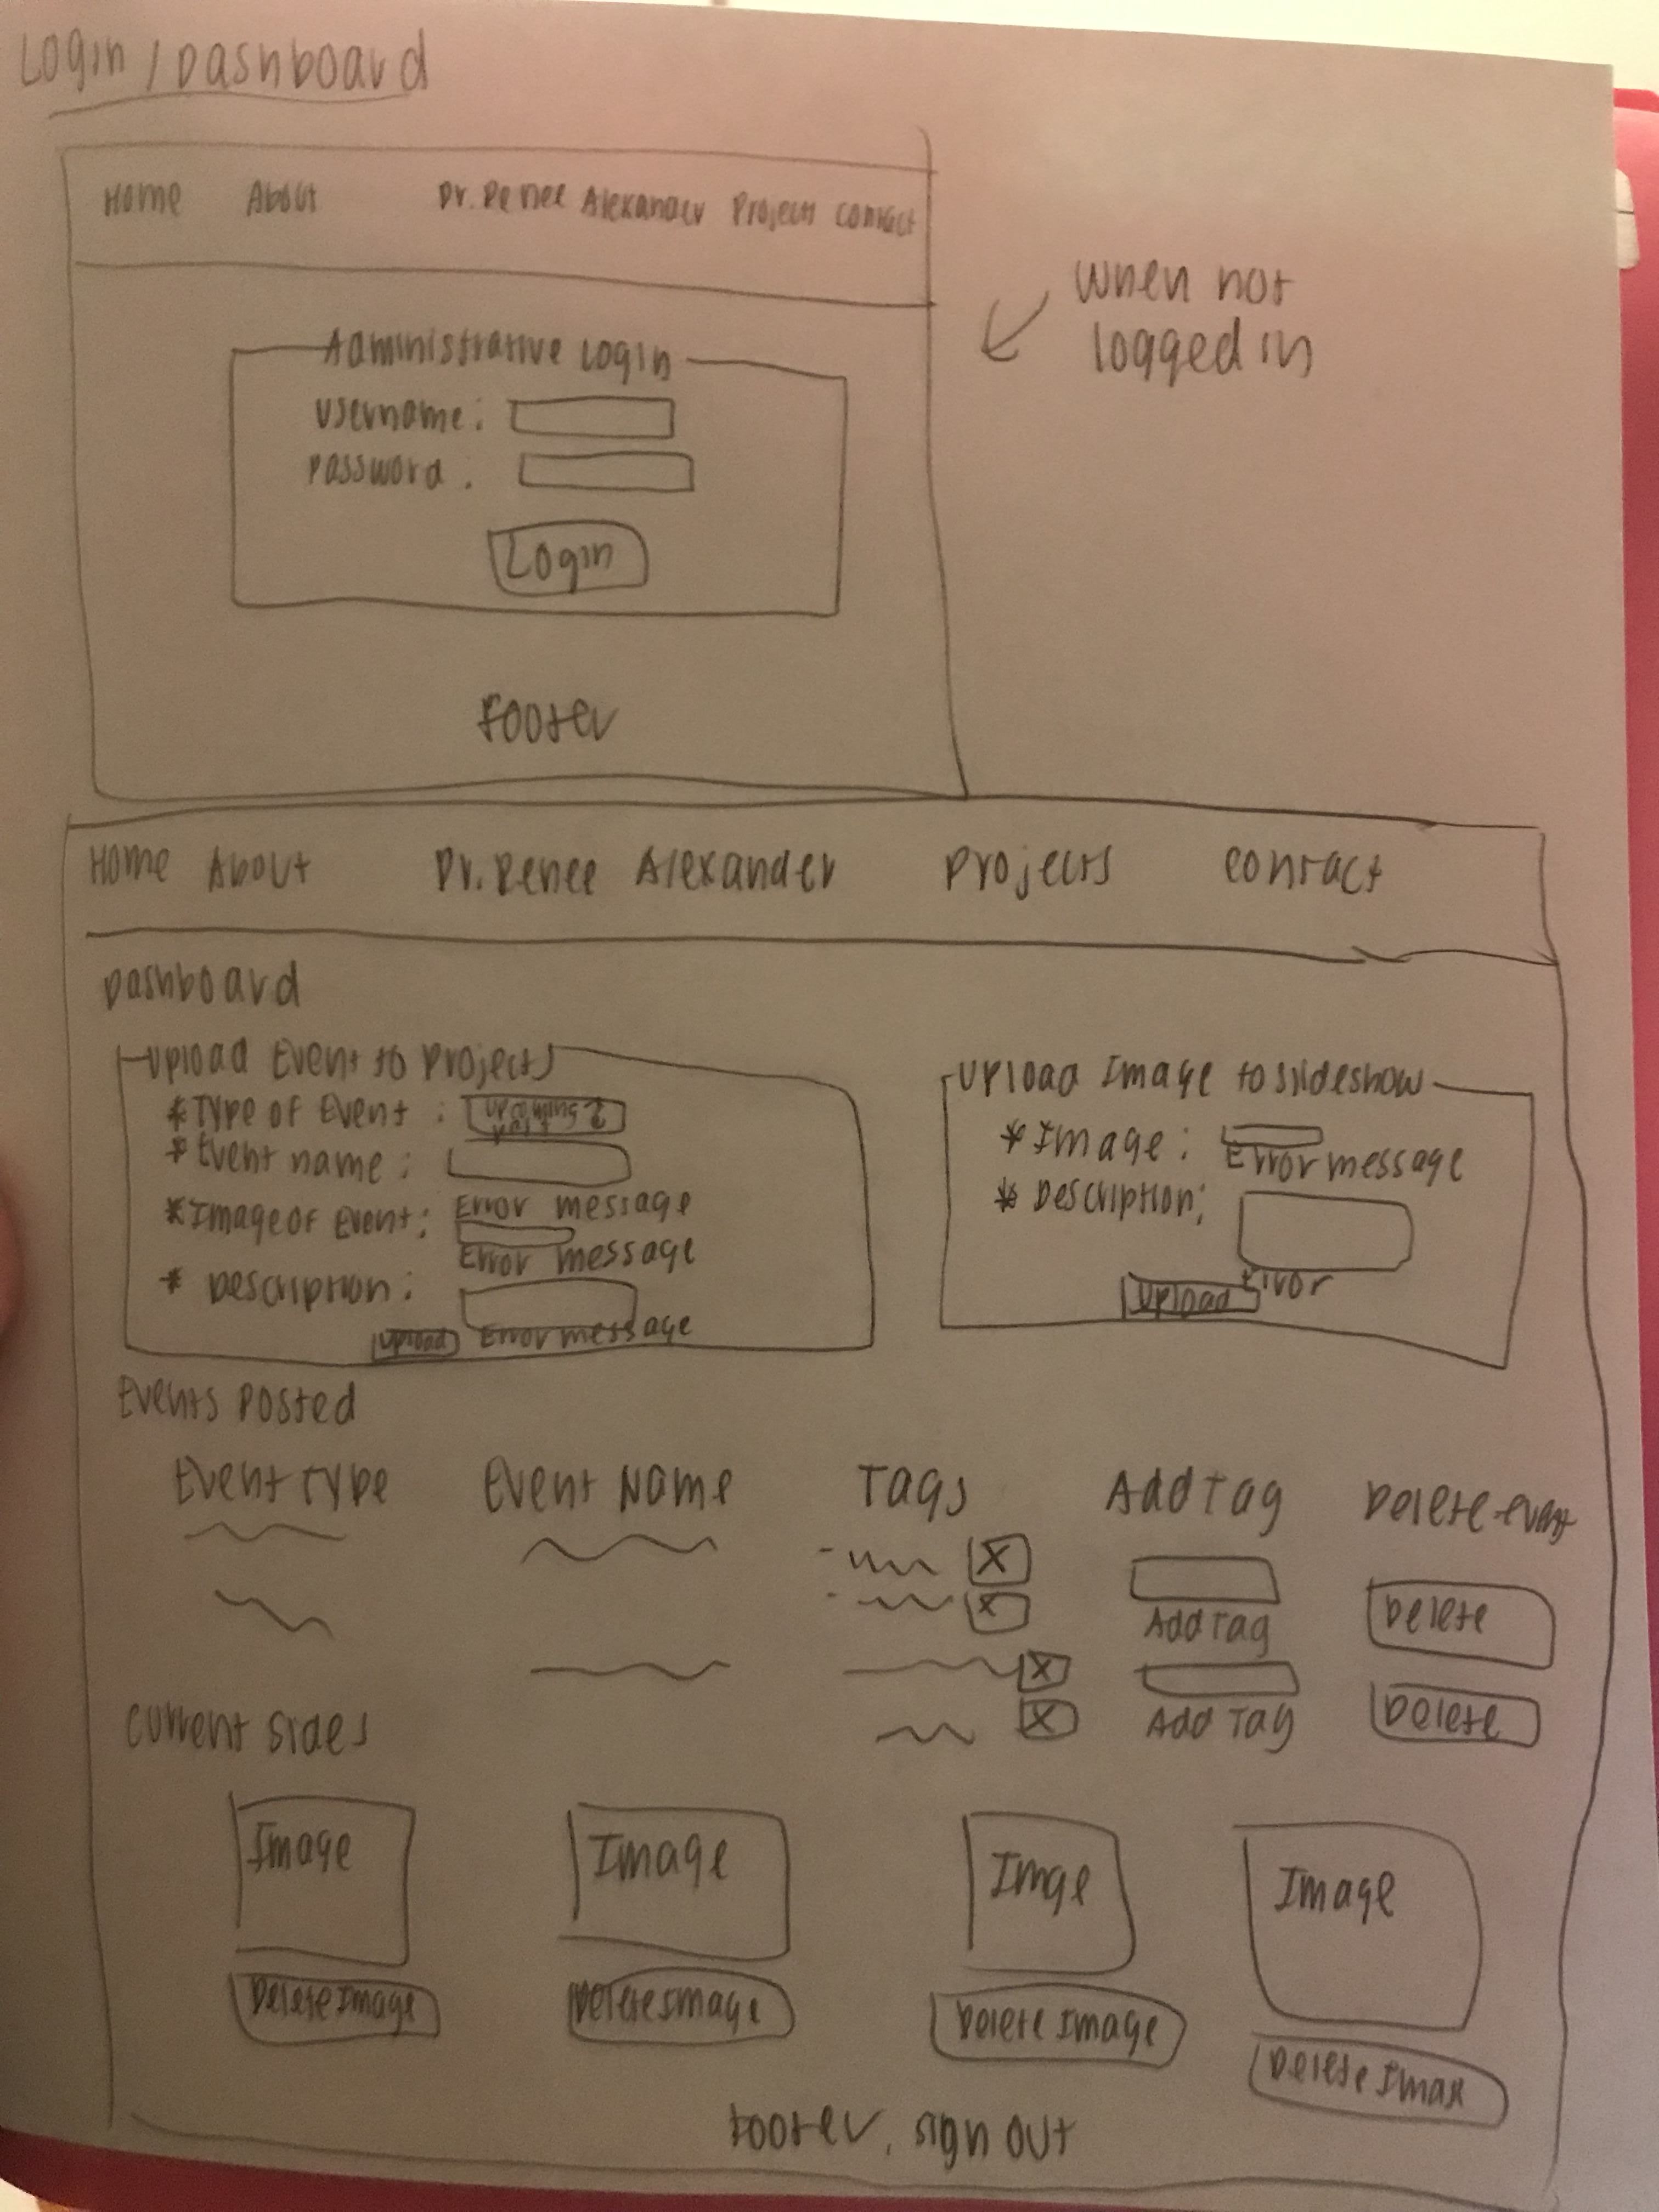 Login / Dashboard
Home About Dr. Renee Alexander Projects Contact
when not
logged in
Administrative Login
Username:
Password:
Login
Footer
Home About Dr. Renee Alexander Projects Contact
Dashboard
Upload Event to Projects
*Type of Event: Upcoming
*Event name:
Error message
*Image of Event:
Error message
* Description:
Upload Error message
Upload Image to slideshow
*Image:
Error message
* Description:
Error
Upload
Events Posted
Event Type Event Name Tags Add Tag Delete event
X
X
Add Tag Delete
X
X
Add Tag Delete
Current Sides
Image Image Imge Image
Delete Image Delete Image Delete Image Delete Image
Footer, sign out